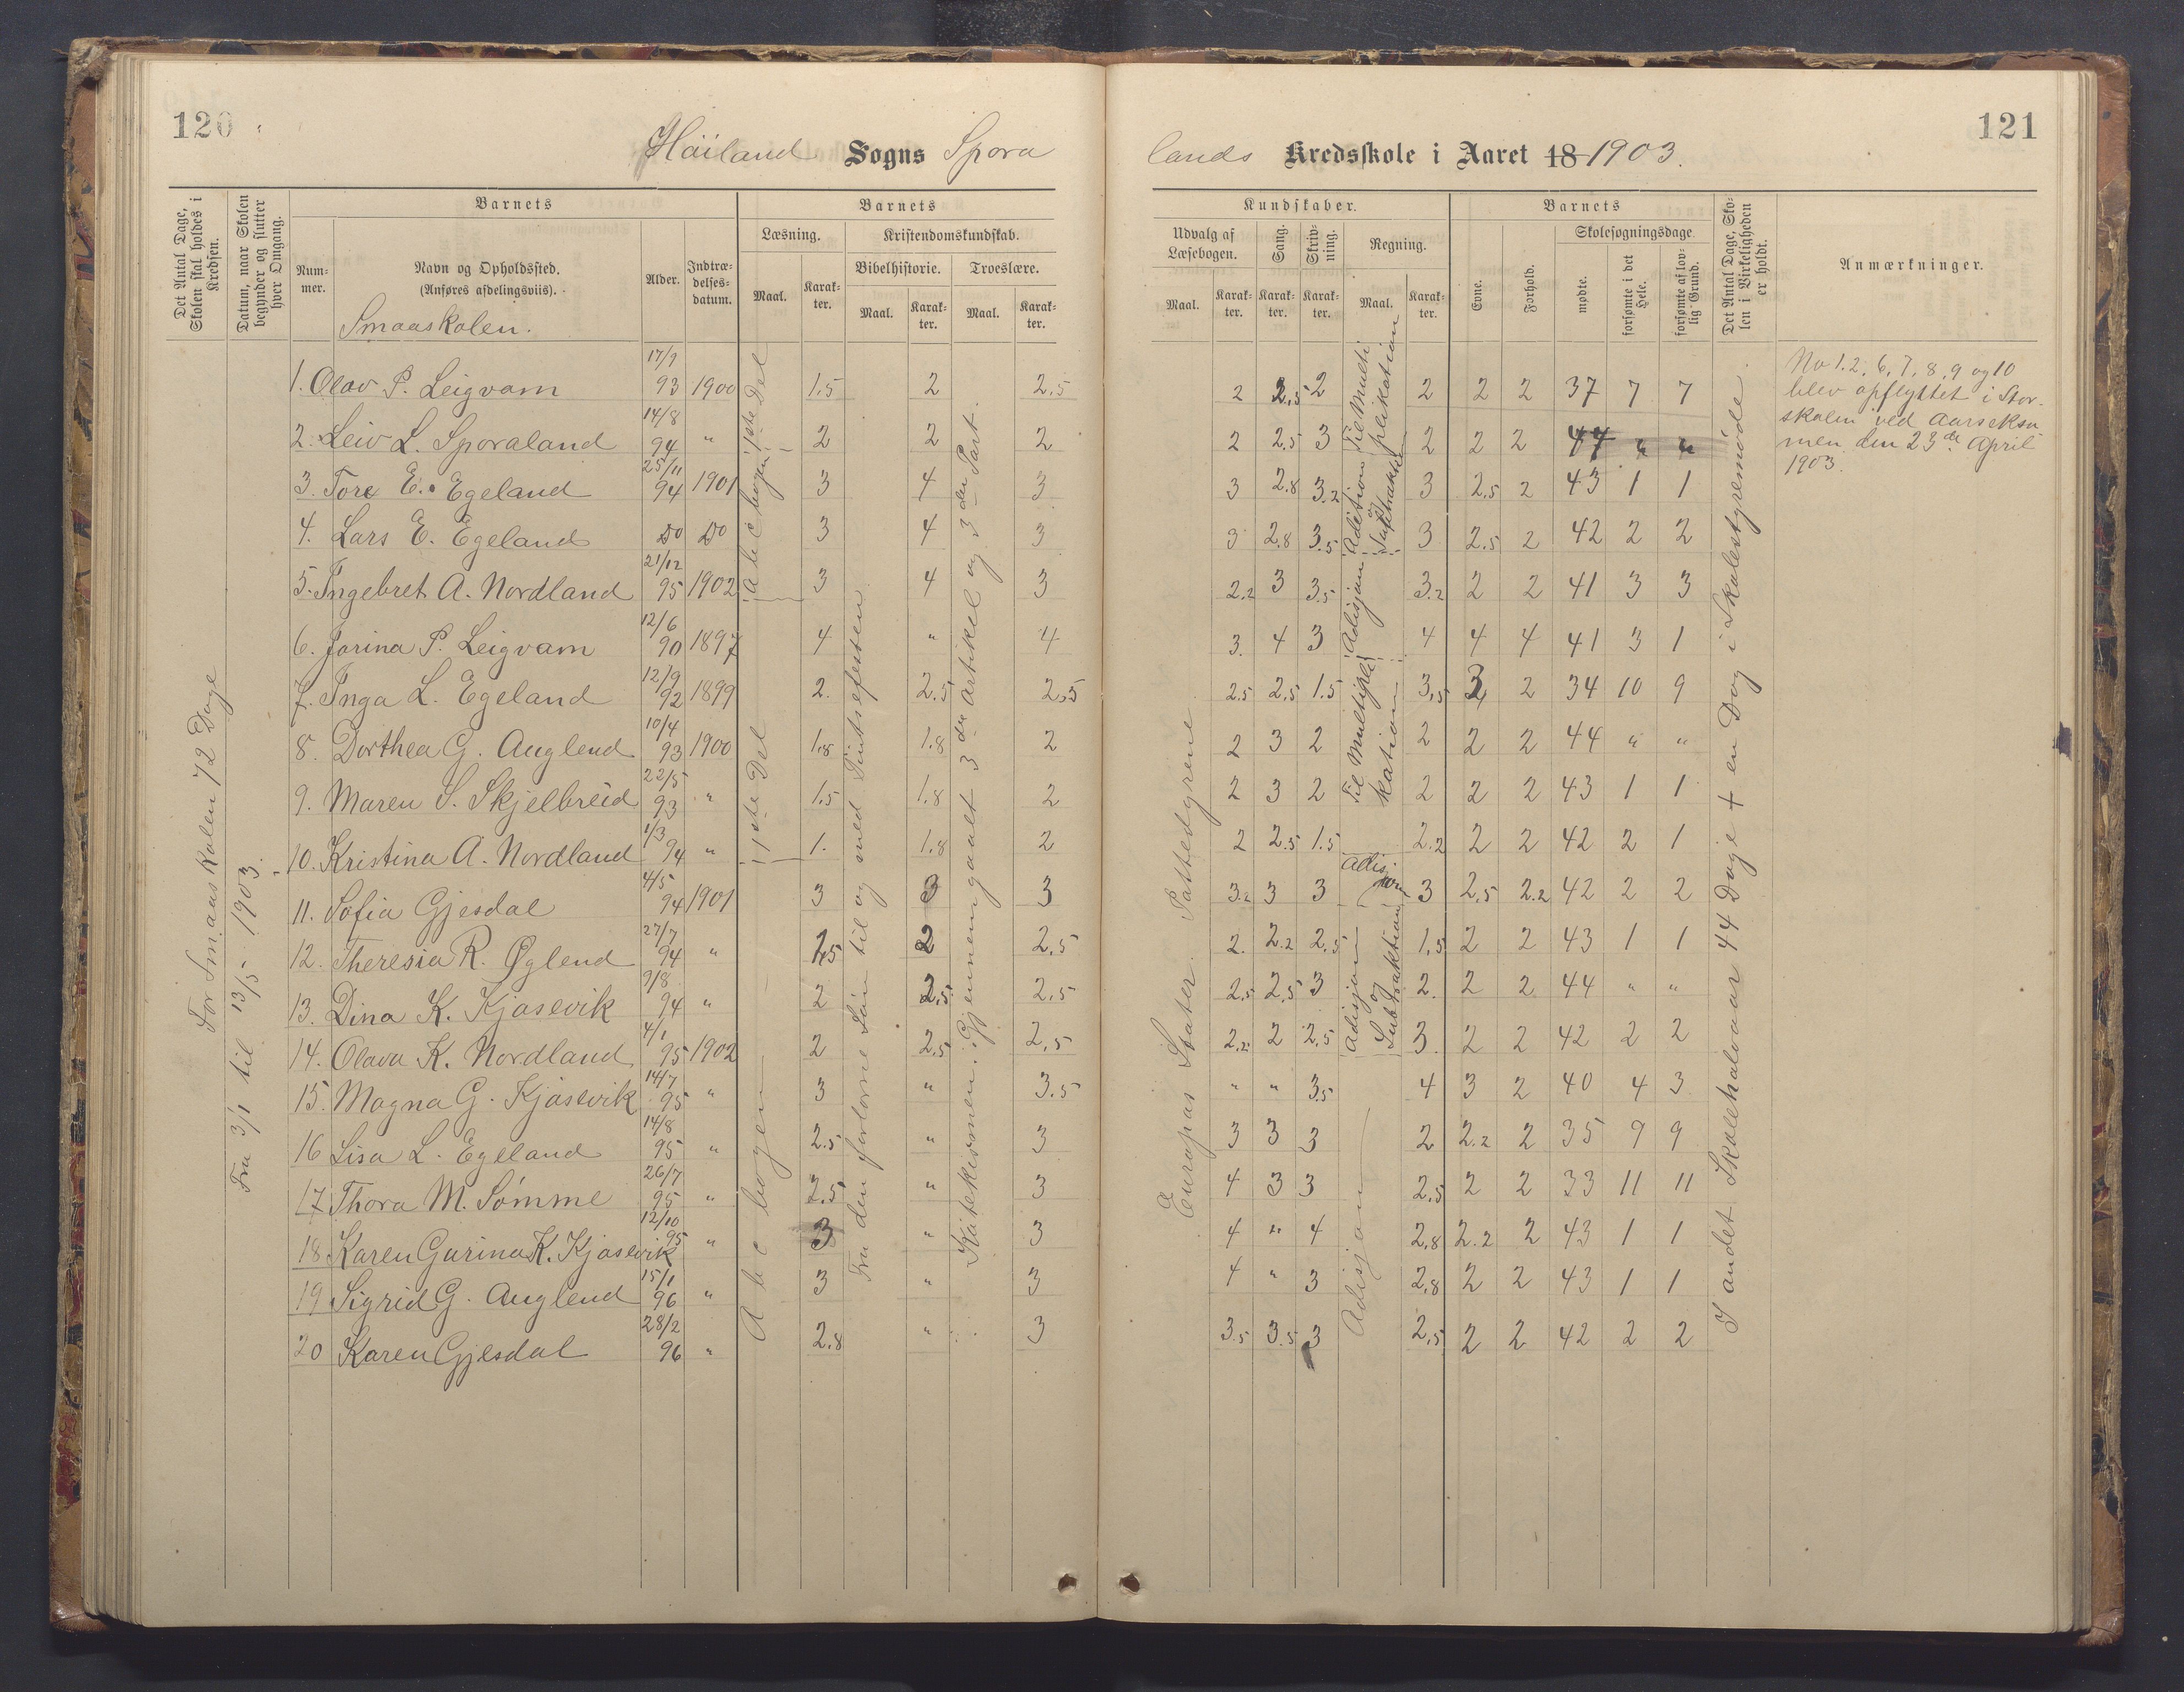 120
Höiland Sogns Spora
Det Antal Dage, Skolen skal holdes i Kredsen.
Datum, naar Skolen begynder og slutter hver Omgang.
Barnets
Barnets
Læsning. Kristendomskundskab.
Bibelhistorie. Troeslære.
Num-mer. Navn og Opholdssted. (Anføres afdelingsviis). Alder. Indtræ-delses-datum. Maal. Karak-ter. Maal. Karak-ter. Maal. Karak-ter.
Smaaskolen.
For Smaaskolen 72 Dage
Fra 3/1 til 13/5 1903.
1. Olav P. Leigvam 17/9 93 1900 1.5 2 2.5
2. Leiv L. Sporaland 14/8 94 " 2 2 2
3. Tore E. Egeland 25/11 94 1901 3 4 3
4. Lars E. Egeland Do Do 3 4 3
5. Ingebret A. Nordland 21/12 95 1902 3 4 3
6. Jorina P. Leigvam 12/6 90 1897 4 " 4
7. Inga L. Egeland 12/9 92 1899 2. 2.5 2.5
8. Dorthea G. Auglend 10/4 93 1900 1.8 1.8 2
9. Maren S. Skjelbreid 22/5 93 " 1.5 1.8 2
10. Kristina A. Nordland 1/3 94 " 1. 1.8 2
11. Sofia Gjesdal 4/5 94 1901 3 3 3
12. Theresia R. Øglend 27/7 94 " 1.5 2 2.5
13. Dina K. Kjosevik 9/8 94 " 2 2.5 2.5
14. Olava K. Nordland 4/1 95 1902 2 2.5 2.5
15. Magna G. Kjosevik 14/7 95 " 3 " 3.5
16 Lisa L. Egeland 14/8 95 " 2.5 " 3
17 Thora M. Sömme 26/7 95 " 2.5 " 3
18 Karen Gurina K. Kjosevik 12/10 95 " 3 " 3
19 Sigrid G. Auglend 15/1 96 " 3 " 3
20 Karen Gjesdal 28/2 96 " 2.8 " 3
Abcbogen 1ste Del
1ste Del
Abcbogen
Fra den fortorne Sön til og med Pintsefesten
Katekismen: Gjennemgaaet 3die Artikel og 3die Part.
121
lands Kredsskole i Aaret 18 1903.
Kundskaber.
Barnets
Udvalg af Læsebogen. Sang. Skriv-ning. Regning.
Skolesøgningsdage.
Maal. Karak-ter. Karak-ter. Karak-ter. Maal. Karak-ter. Evne. Forhold. mødte. forsømte i det Hele. forsømte af lov-lig Grund.
Det Antal Dage, Sko-len i Virkeligheden er holdt.
Anmærkninger.
2 2.5 2 2 2 2 37 7 7
2 2.5 3 2 2 2 44 " "
3 2.8 3.2 3 2.5 2 43 1 1
3 2.8 3.5 3 2.5 2 42 2 2
2.2 3 3.5 3.2 2 2 41 3 3
3. 4 3 4 4 4 41 3 1
2.5 2.5 1.5 3.5 3 2 34 10 9
2 3 2 2 2 2 44 " "
2 3 2 2 2 2 43 1 1
2 2.5 1.5 2.2 2 2 42 2 1
3.2 3 3 3 2.5 2.2 42 2 2
2. 2.2 2.5 1.5 2 2 43 1 1
2.5 2.5 3 2. 2 2 44 " "
2.2 2 2.5 3. 2 2 42 2 2
" " 3.5 4 3 2 40 4 3
3 3 3 2 2.2 2 35 9 9
4 3 3 2.5 2 2 33 11 11
4 " 4 2.8 2.2 2 43 1 1
4 " 3 2.8 2 2 43 1 1
3.5 3.5 3 2.5 2 2 42 2 2
Europas Stater. Pattedyrene
Til Multiplikation
Adition og Suptraktion
Adisjon
Til Multiplikation
Adisjon
Adisjon og Subtraktion
Adisjon
I andet Skolehalvaar 44 Dage + en Dag i Skolestyremöde.
No 1, 2, 6, 7, 8, 9 og 10
blev opflyttet i Stor-
skolen ved Aarseksa
men den 23de April
1903.